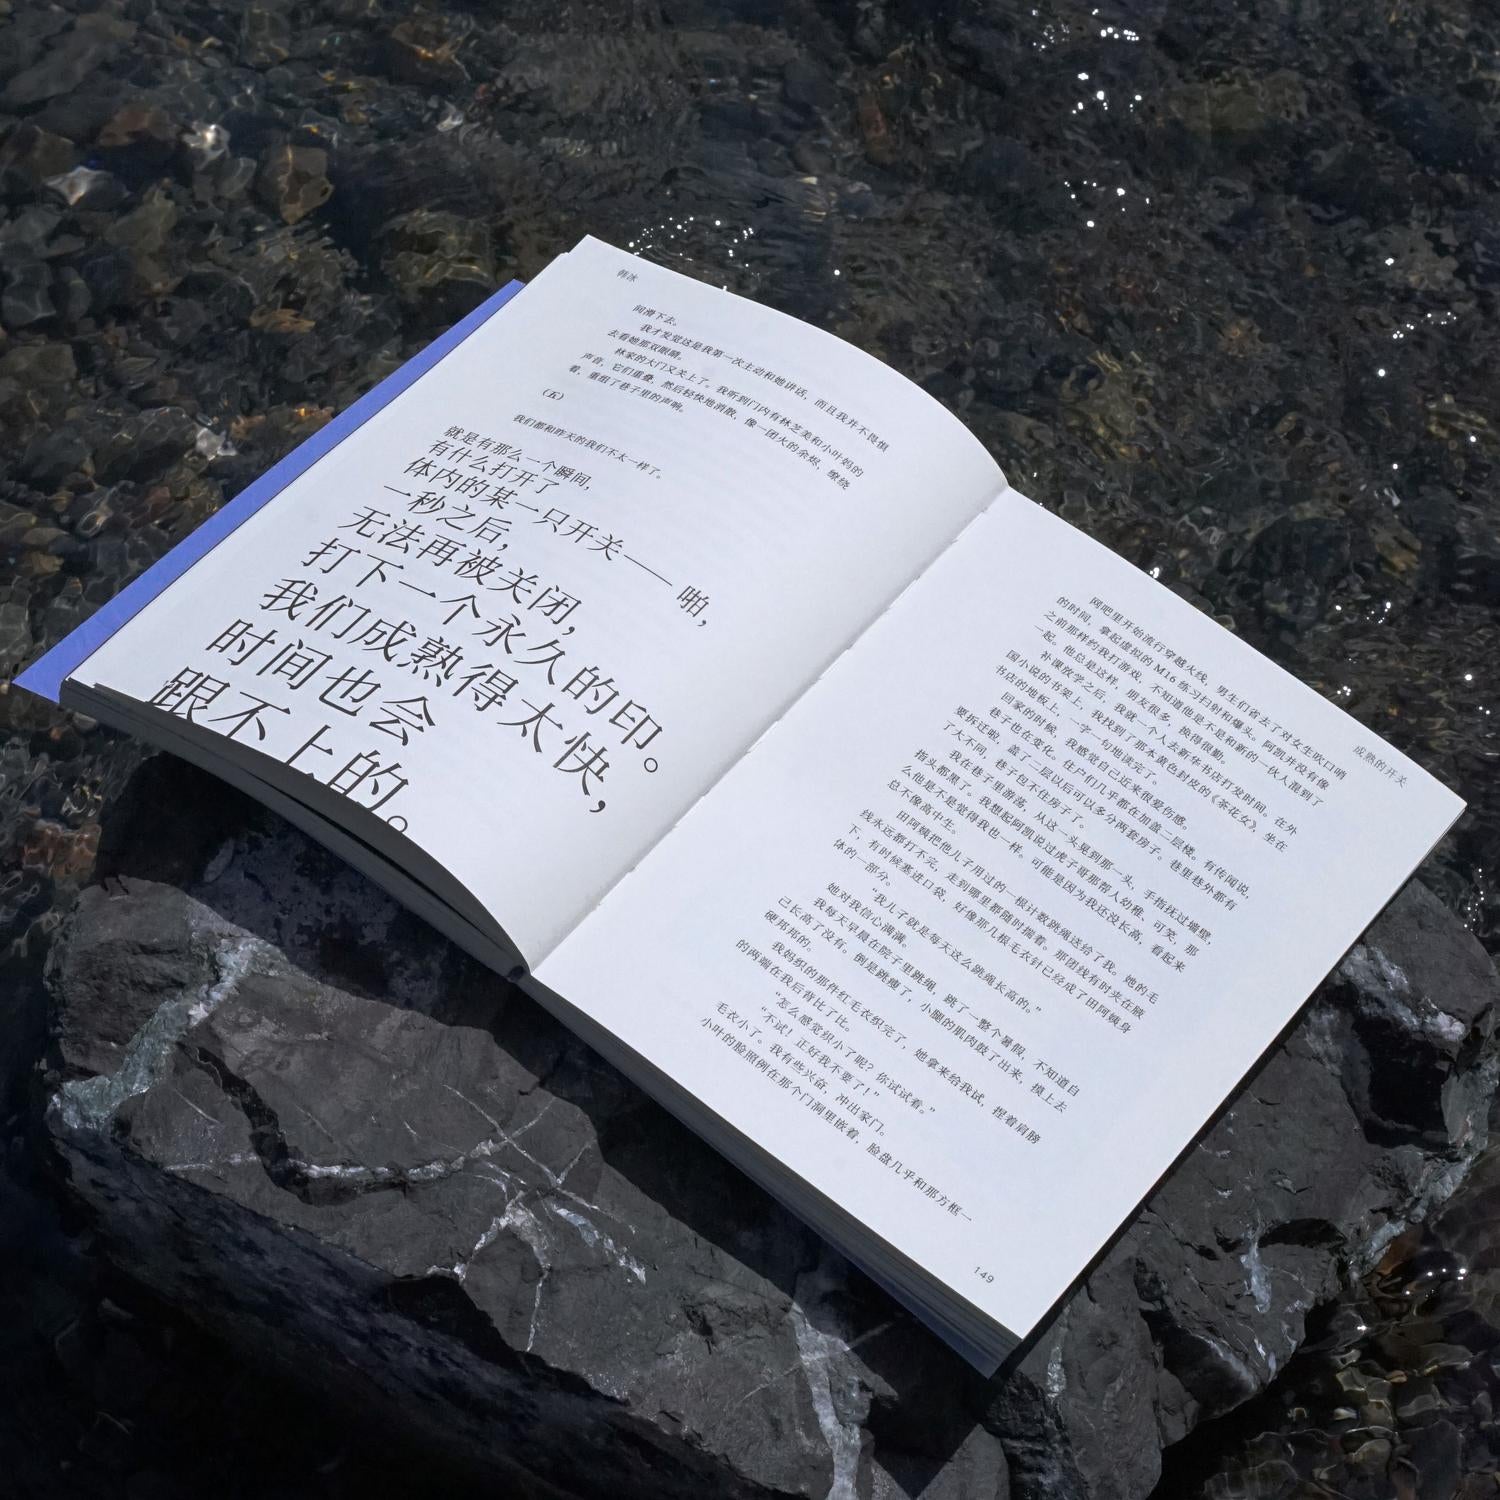 韩冰
间滑下去。
我才发觉这是我第一次主动和她讲话，而且我并不畏惧
去看她那双眼睛。
林家的大门又关上了。我听到门内有林芝美和小叶妈的
声音，它们重叠，然后轻快地消散，像一团火的余烬，缭绕
着，重组了巷子里的声响。
（五）
我们都和昨天的我们不太一样了。
就是有那么一个瞬间，
有什么打开了
体内的某一只开关——啪，
一秒之后，
无法再被关闭，
打下一个永久的印。
我们成熟得太快，
时间也会
跟不上的。
成熟的开关
网吧里开始流行穿越火线，男生们省去了对女生吹口哨
的时间，拿起虚拟的 M16 练习扫射和爆头。阿凯并没有像
之前那样约我打游戏，不知道他是不是和新的一伙人混到了
一起。他总是这样，朋友很多，换得很勤。
补课放学之后，我就一个人去新华书店打发时间。在外
国小说的书架上，我找到了那本黄色封皮的《茶花女》，坐在
书店的地板上，一字一句地读完了。
回家的时候，我感觉自己近来很爱伤感。
巷子也在变化。住户们几乎都在加盖二层楼。有传闻说，
要拆迁啦，盖了二层以后可以多分两套房子。巷里巷外都有
了大不同，巷子包不住房子了。
我在巷子里游荡，从这一头晃到那一头，手指抚过墙壁，
指头都黑了。我想起阿凯说过虎子哥那帮人幼稚、可笑，那
么他是不是觉得我也一样。可能是因为我还没长高，看起来
总不像高中生。
田阿姨把他儿子用过的一根计数跳绳送给了我。她的毛
线永远都打不完，走到哪里都随时揣着。那团线有时夹在腋
下，有时候塞进口袋，好像那几根毛衣针已经成了田阿姨身
体的一部分。
“我儿子就是每天这么跳绳长高的。”
她对我信心满满。
我每天早晨在院子里跳绳，跳了一整个暑假，不知道自
己长高了没有。倒是跳瘦了，小腿的肌肉鼓了出来，摸上去
硬邦邦的。
我妈织的那件红毛衣织完了，她拿来给我试，捏着肩膀
的两端在我后背比了比。
“怎么感觉织小了呢？你试试看。”
“不试！正好我不要了！”
毛衣小了。我有些兴奋，冲出家门。
小叶的脸照例在那个门洞里嵌着，脸盘几乎和那方框一
149